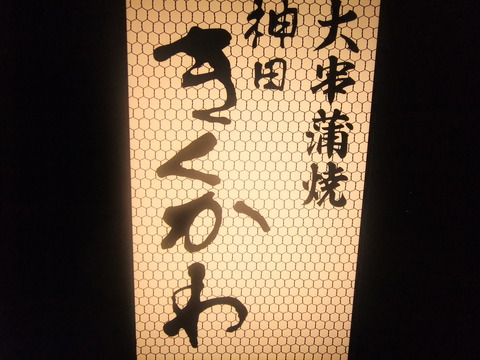 大串蒲焼
神田
きくかわ